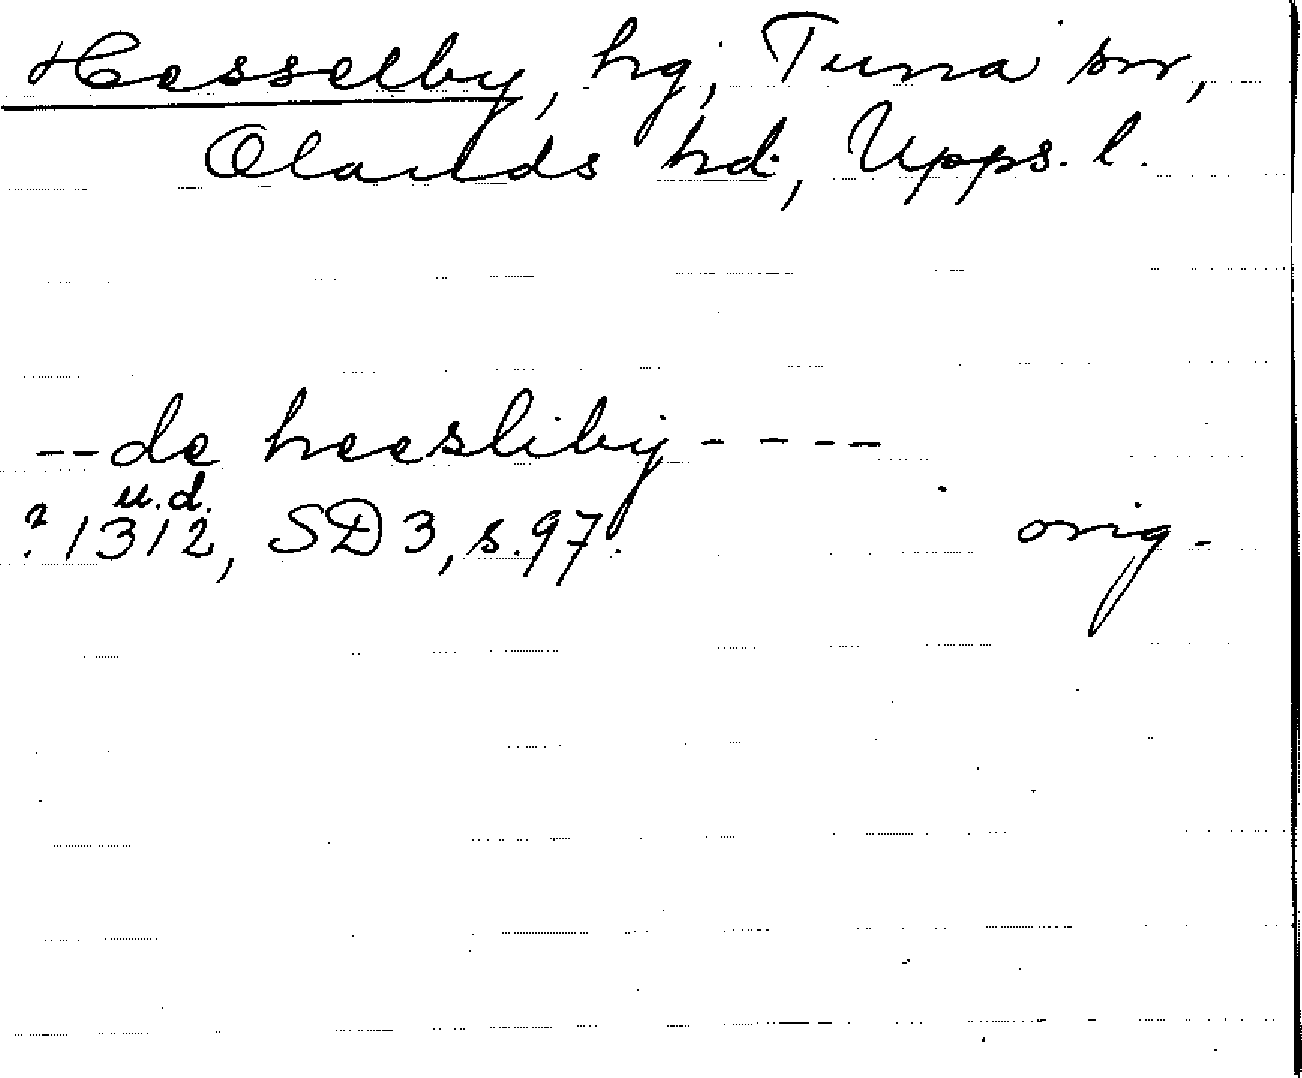 Hesselby, hg, Tuna sn,
Olands hd., Upps. l.
-- de heesliby - - - -
u.d.
? 1312, SD 3, s. 97. orig.